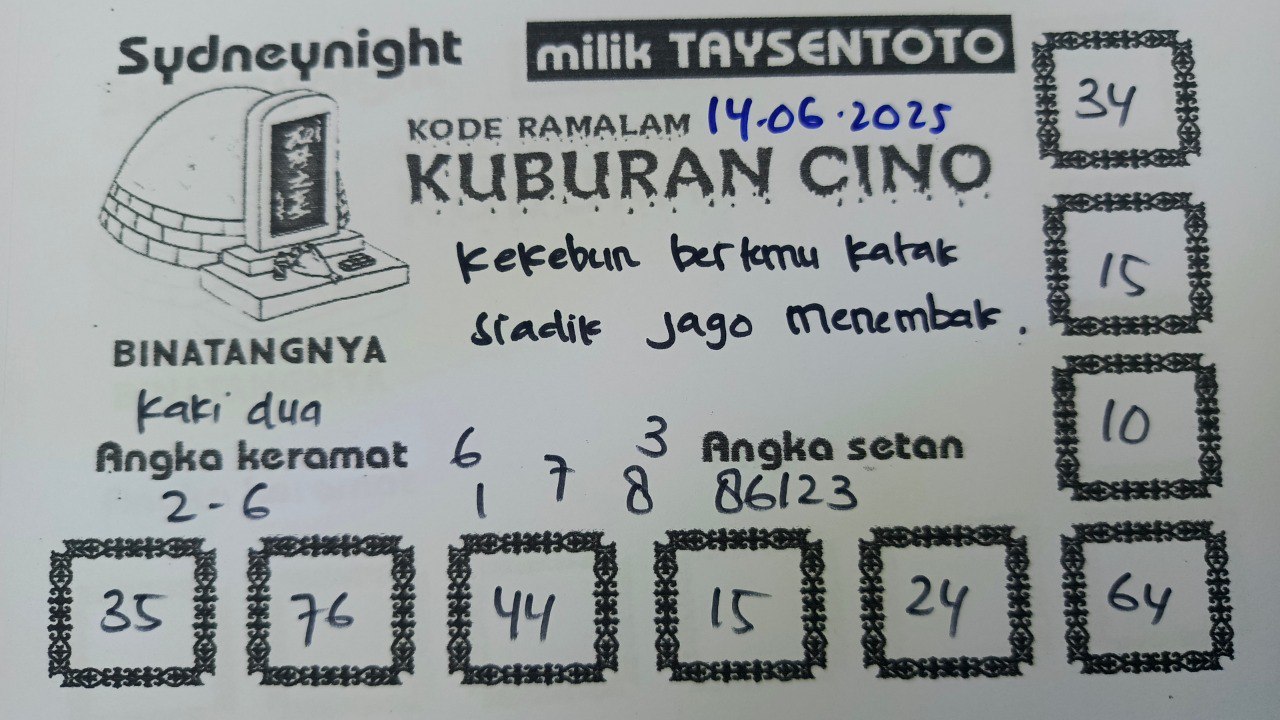 Sydneynight
milik TAYSENTOTO
34
KODE RAMALAM 14.06.2025
KUBURAN CINO
15
Kekebun bertemu katak
siadik jago menembak.
BINATANGNYA
Kaki dua
10
Angka keramat 6 3 Angka setan
2-6 1 7 8 86123
35 76 44 15 24 64